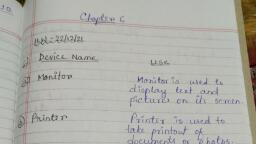 Chapter 6
22/12/21
Device Name use
Monitor Monitor is used to
display text and
pictures on its screen.
Printer Printer is used to
take printout of
documents or photos.